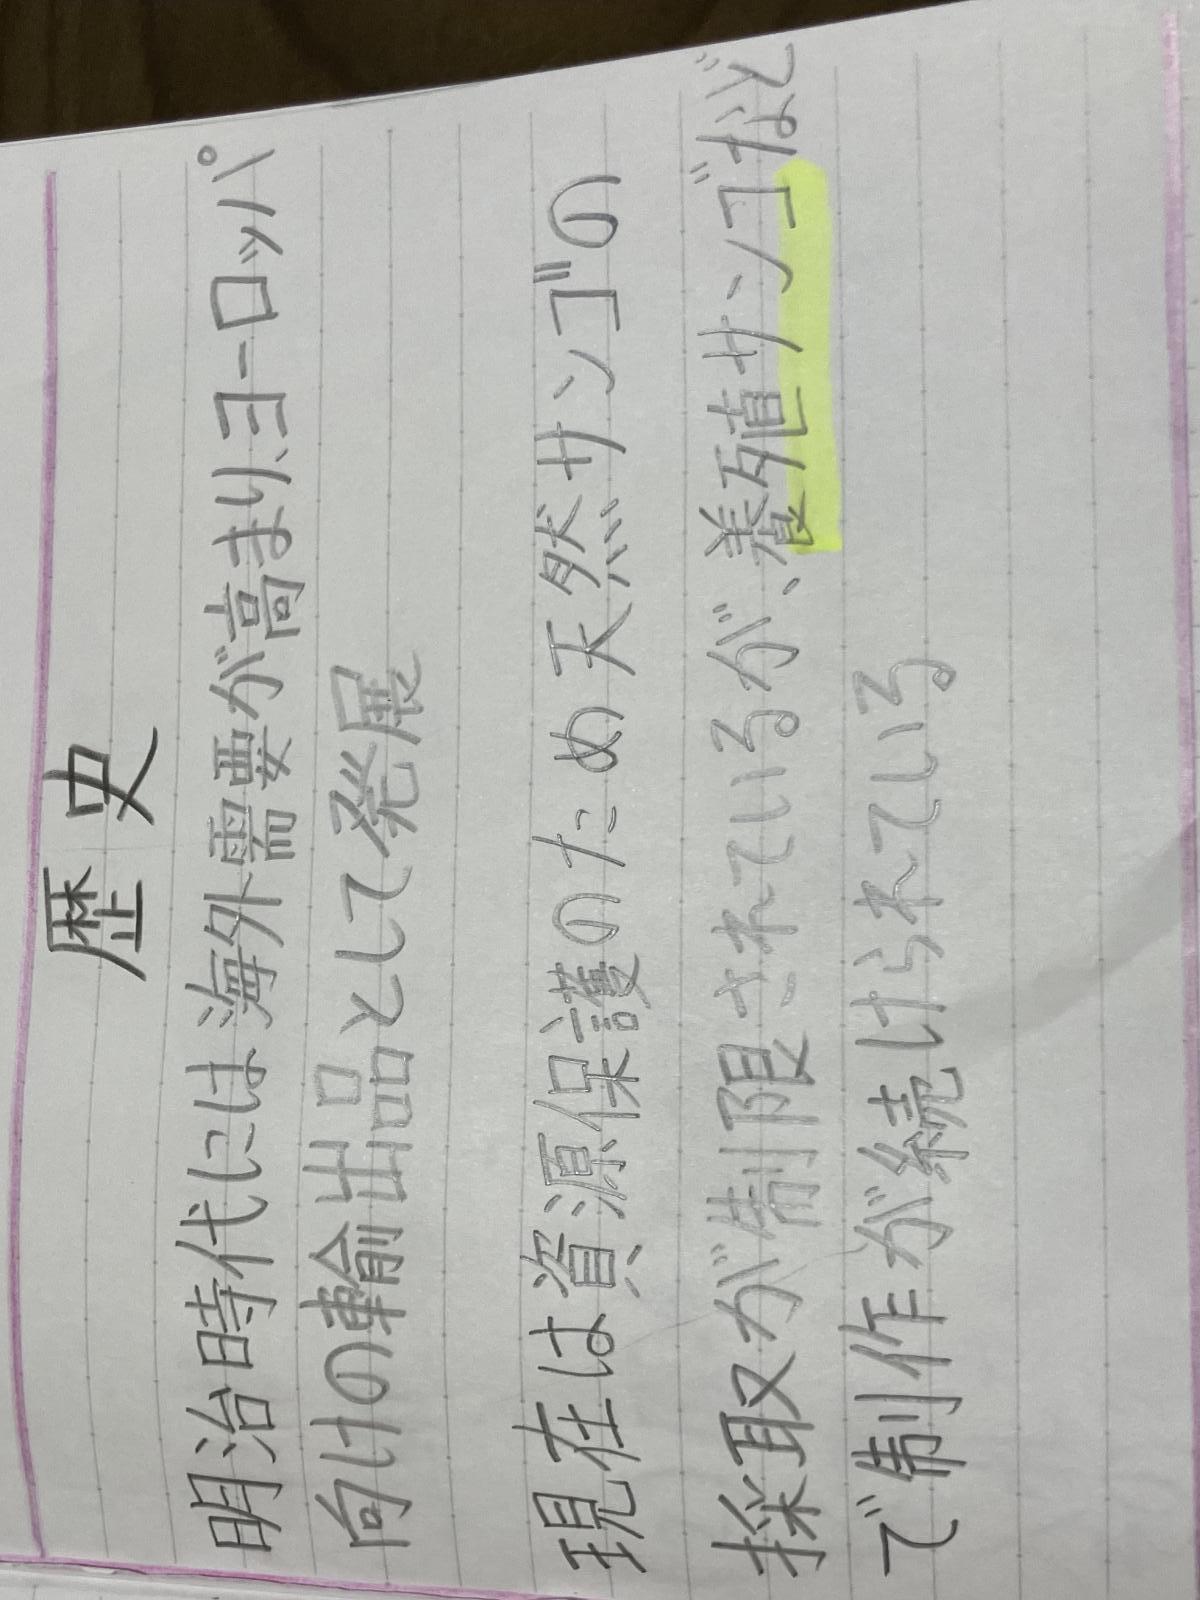 歴史
明治時代には海外需要が高まり、ヨーロッパ
向けの輸出品として発展
現在は資源保護のため天然サンゴの
採取が制限されているが、養殖サンゴなど
で制作が続けられている